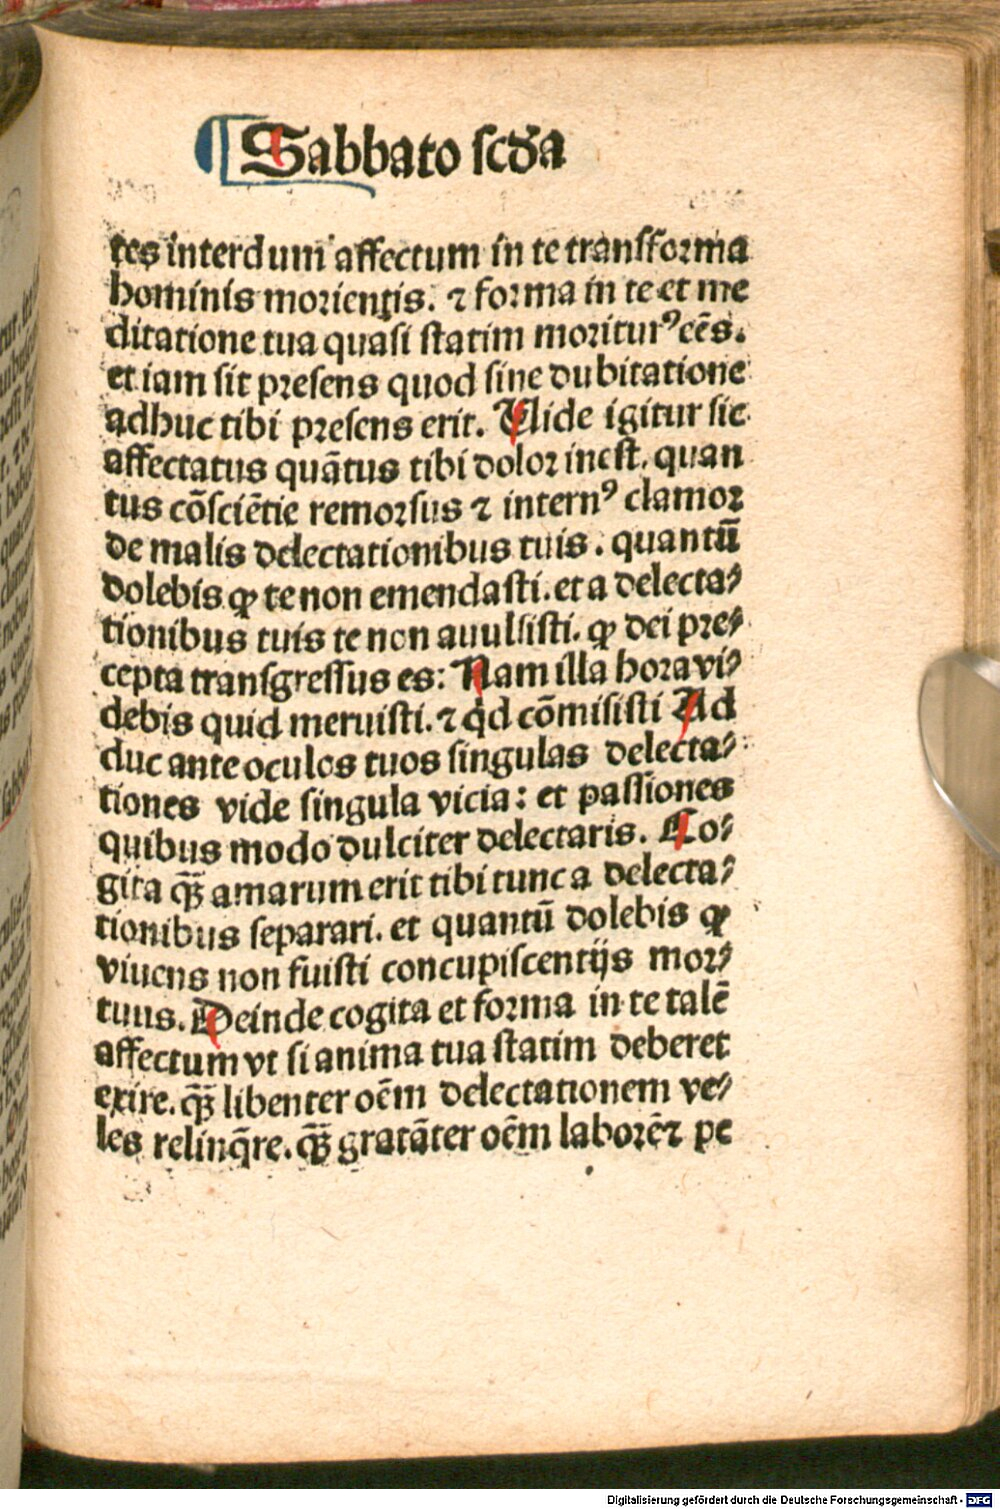 Sabbato scďa
tes interdum affectum in te transforma
hominis morientis. ⁊ forma in te et me
ditatione tua quasi statim moriturꝰ eēs.
et iam sit presens quod sine dubitatione
adhuc tibi presens erit. Vide igitur sic
affectatus quātus tibi dolor inest. quan
tus cōsciētie remorsus ⁊ internꝰ clamor
de malis delectationibus tuis. quantū
dolebis ꝙ te non emendasti. et a delecta⸗
tionibus tuis te non auulsisti. ꝙ dei pre⸗
cepta transgressus es: Nam illa hora vi⸗
debis quid meruisti. ⁊ qd cōmisisti Ad
duc ante oculos tuos singulas delecta⸗
tiones vide singula vicia: et passiones
quibus modo dulciter delectaris. Co⸗
gita q̄ꝫ amarum erit tibi tunc a delecta⸗
tionibus separari. et quantū dolebis ꝙ
viuens non fuisti concupiscentijs mor⸗
tuus. Deinde cogita et forma in te talē
affectum vt si anima tua statim deberet
exire. q̄ꝫ libenter oēm delectationem ve⸗
les relinq̄re. q̄ꝫ gratāter oēm laborē ⁊ pe
Digitalisierung gefördert durch die Deutsche Forschungsgemeinschaft - DFG